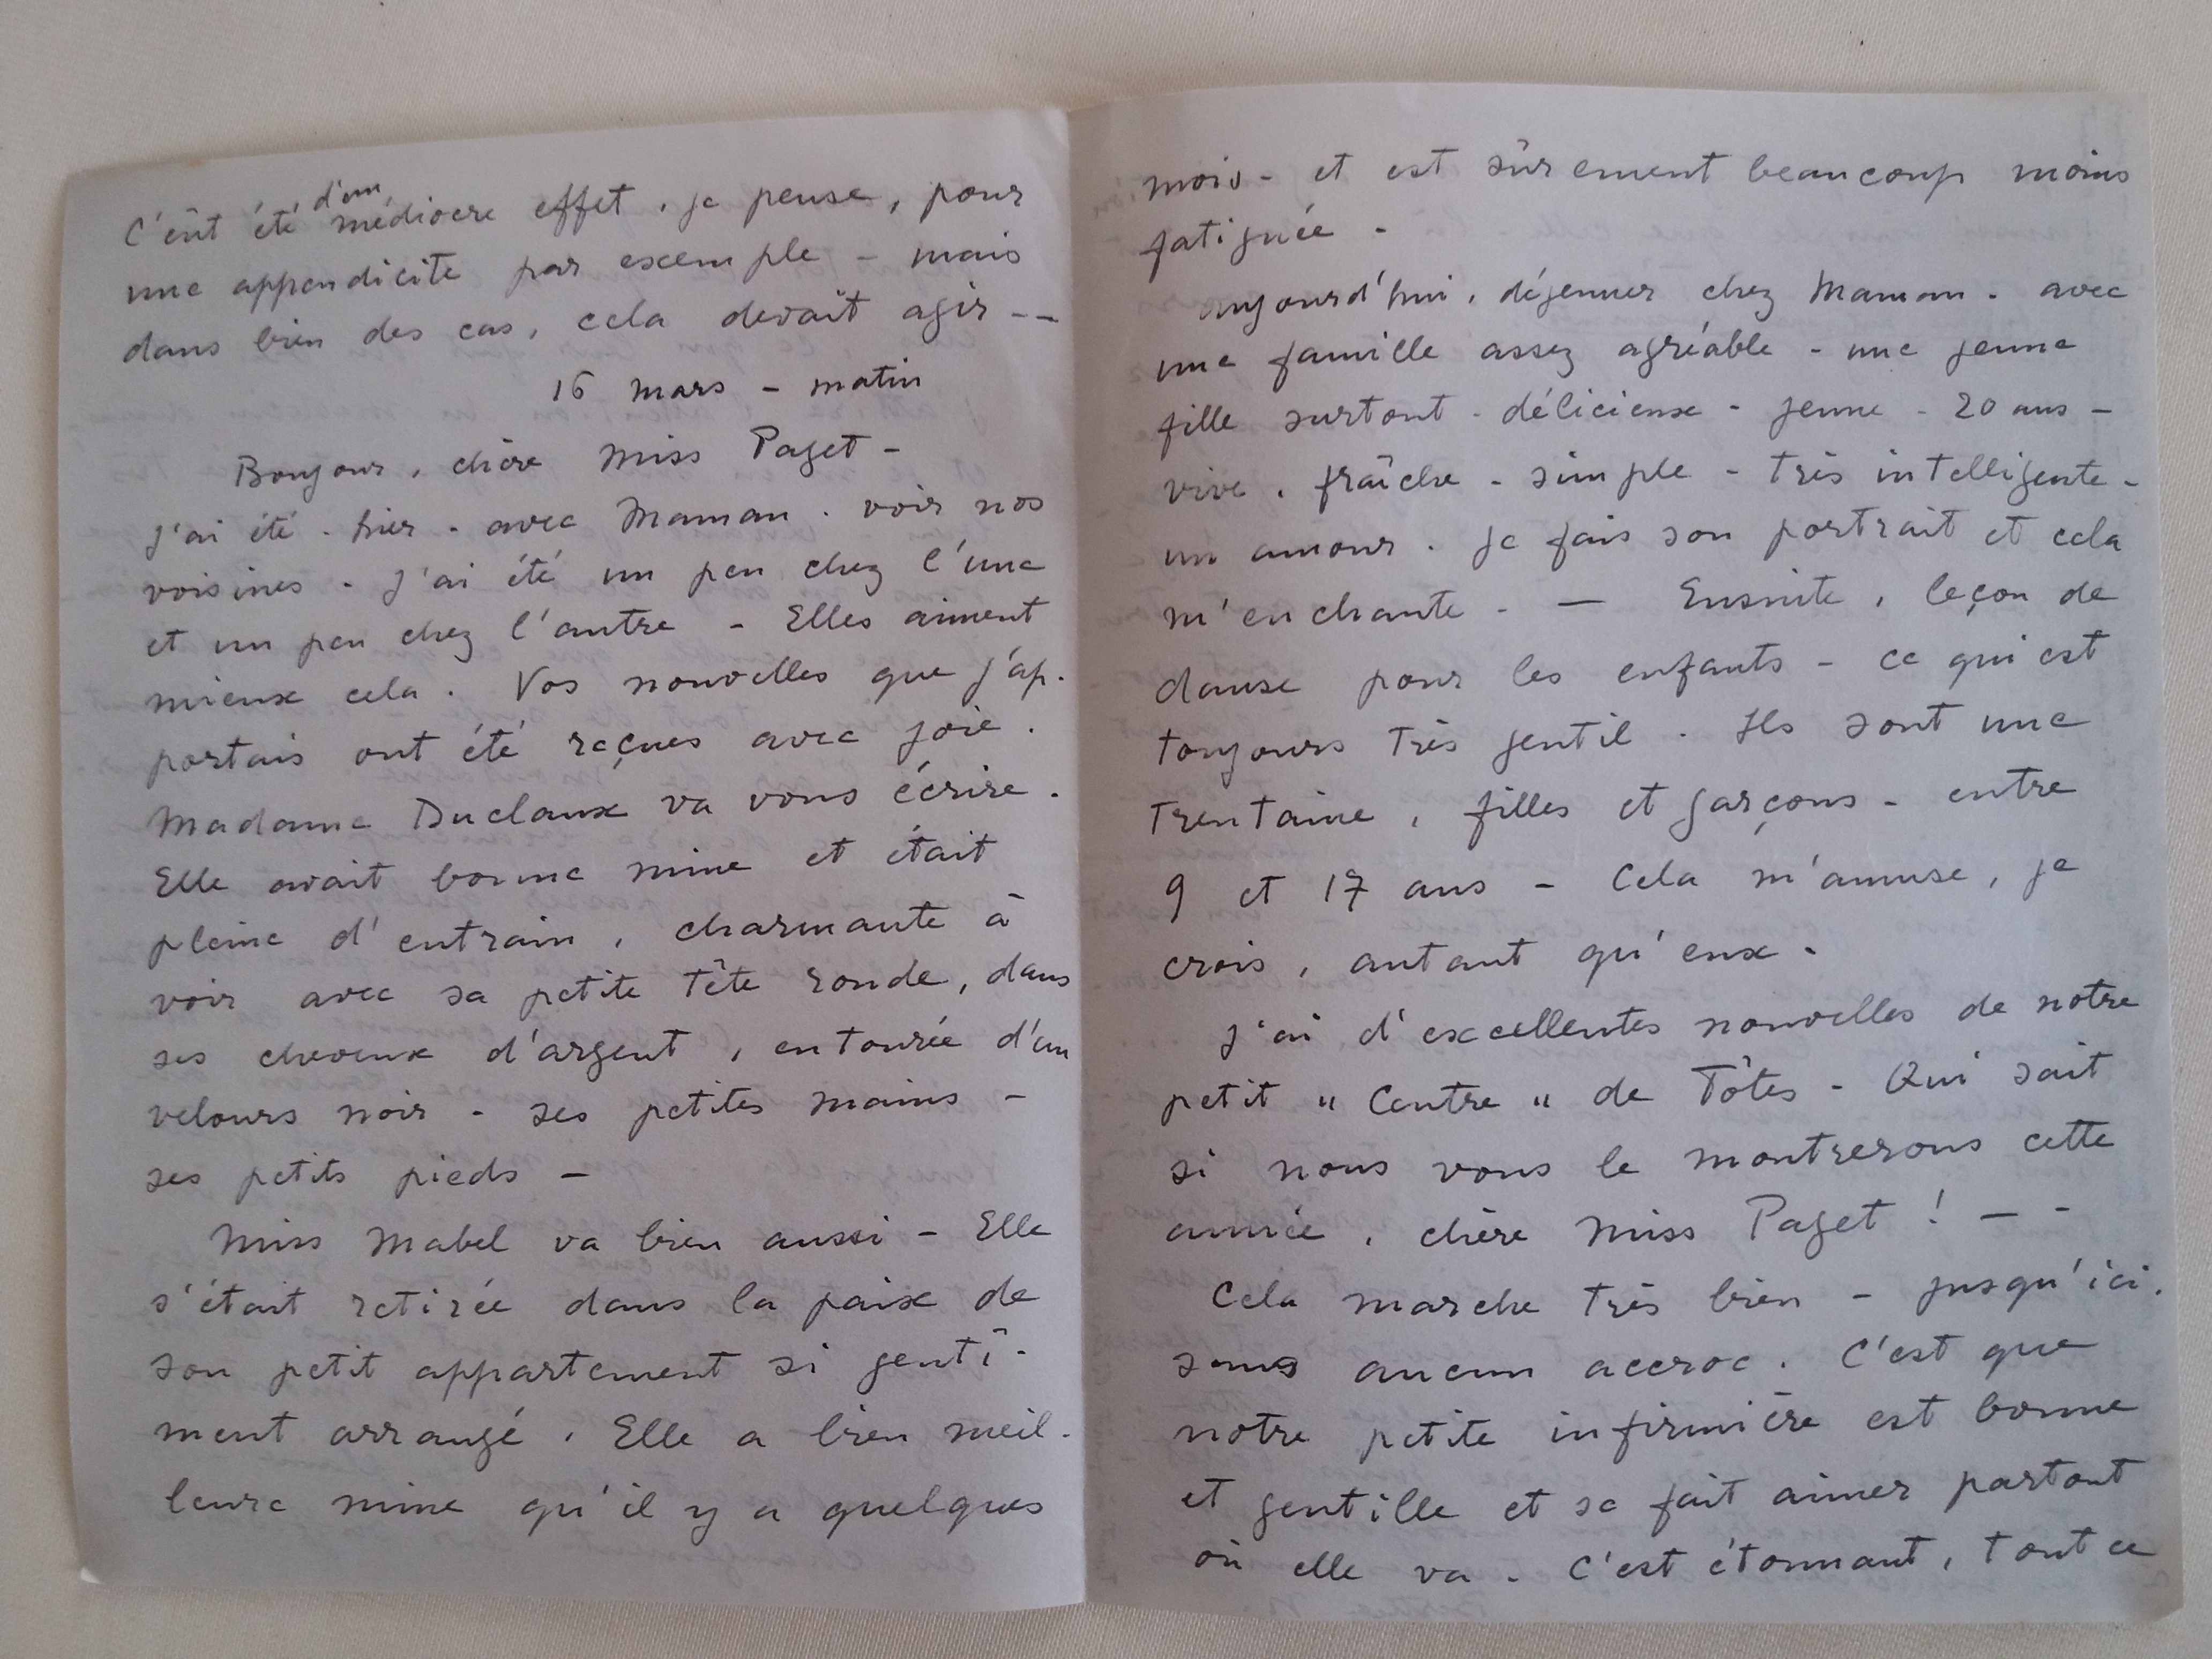 C'eût été d'un médiocre effet, je pense, pour
une appendicite par exemple - mais
dans bien des cas, cela devait agir --
16 mars - matin
Bonjour, chère Miss Paget -
J'ai été - hier - avec Maman. voir nos
voisines - J'ai été un peu chez l'une
et un peu chez l'autre - Elles aiment
mieux cela. Vos nouvelles que j'ap-
portais ont été reçues avec joie.
Madame Duclaux va vous écrire.
Elle avait bonne mine et était
pleine d'entrain, charmante à
voir avec sa petite tête ronde, dans
ses cheveux d'argent, entourée d'un
velours noir - ses petites mains -
ses petits pieds -
Miss Mabel va bien aussi - Elle
s'était retirée dans la paix de
son petit appartement si genti-
ment arrangé. Elle a bien meil-
leure mine qu'il y a quelques
mois - et est sûrement beaucoup moins
fatiguée -
aujourd'hui, déjeuner chez Maman - avec
une famille assez agréable - une jeune
fille surtout - délicieuse - jeune - 20 ans -
vive, fraîche - simple - très intelligente -
un amour. Je fais son portrait et cela
m'enchante - — Ensuite, leçon de
danse pour les enfants - ce qui est
toujours très gentil. Ils sont une
trentaine, filles et garçons - entre
9 et 17 ans - Cela m'amuse, je
crois, autant qu'eux -
J'ai d'excellentes nouvelles de notre
petit "Centre" de Tôtes - Qui sait
si nous vous le montrerons cette
année, chère Miss Paget ! — -
Cela marche très bien - jusqu'ici.
sans aucun accroc. C'est que
notre petite infirmière est bonne
et gentille et se fait aimer partout
où elle va - C'est étonnant, tout ce